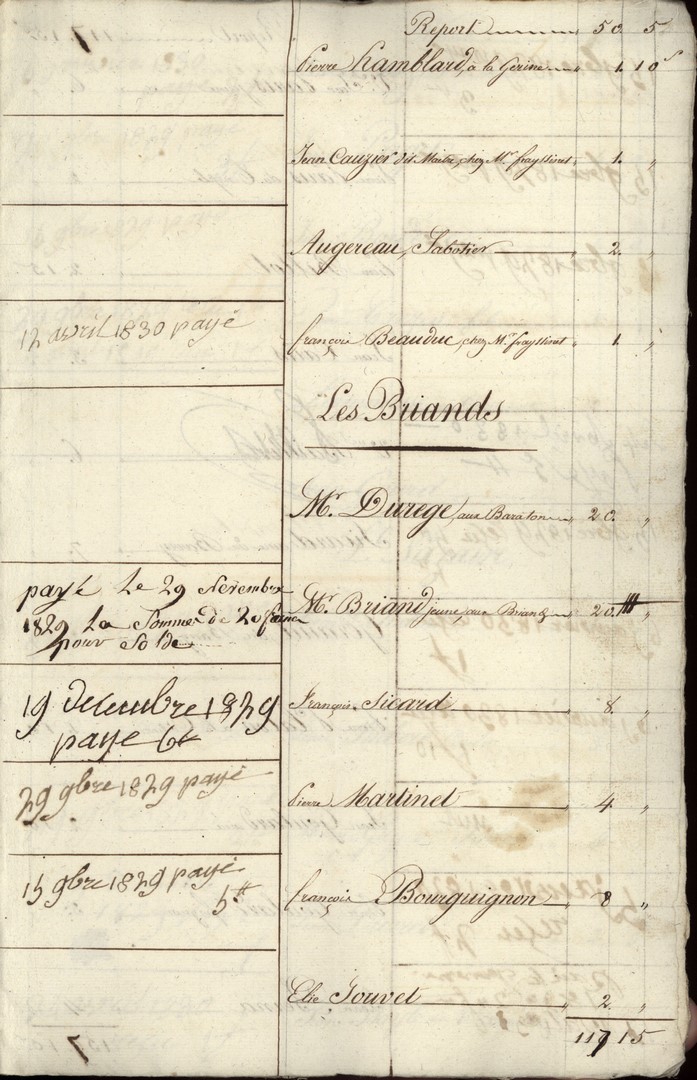 Report 50. 5
Pierre Chamblard, à la Gerine 1. 10 s
Jean Cauzier dit Maitre, chez Mr. frayssinet 1. "
Augereau, Sabotier 2. "
12 avril 1830 payé
françois Beauduc, chez Mr. frayssinet 1. "
Les Briands
Mr. Durege, aux Baraton 20. "
payé Le 29 Novembre
1829 La Somme de 20 franc
pour Solde
Mr. Briand jeune, aux Briands 20. "
19 decembre 1829
paye 6#
François Sicard 8 "
29 9bre 1829 payé
Pierre Martinet 4 "
15 9bre 1829 payé
5#
françois Bourguignon 8 "
Elie Jouvet 2. "
117 15